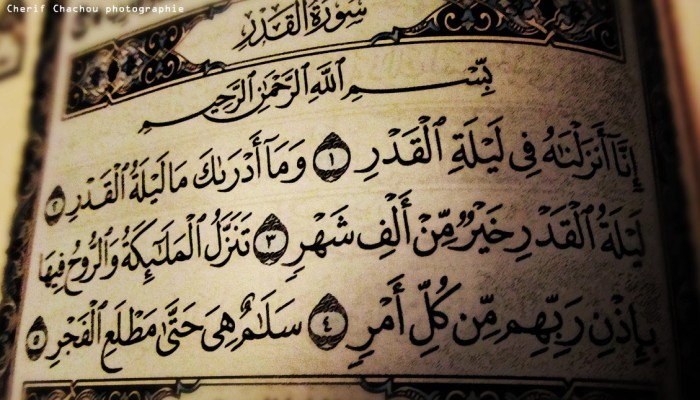 Cherif Chachou photographie
سُورَةُ القَدْرِ
بِسْمِ ٱللَّهِ ٱلرَّحْمَٰنِ ٱلرَّحِيمِ
إِنَّآ أَنزَلْنَٰهُ فِى لَيْلَةِ ٱلْقَدْرِ ١ وَمَآ أَدْرَىٰكَ مَا لَيْلَةُ ٱلْقَدْرِ ٢
لَيْلَةُ ٱلْقَدْرِ خَيْرٌ مِّنْ أَلْفِ شَهْرٍ ٣ تَنَزَّلُ ٱلْمَلَٰٓئِكَةُ وَٱلرُّوحُ فِيهَا
بِإِذْنِ رَبِّهِم مِّن كُلِّ أَمْرٍ ٤ سَلَٰمٌ هِىَ حَتَّىٰ مَطْلَعِ ٱلْفَجْرِ ٥